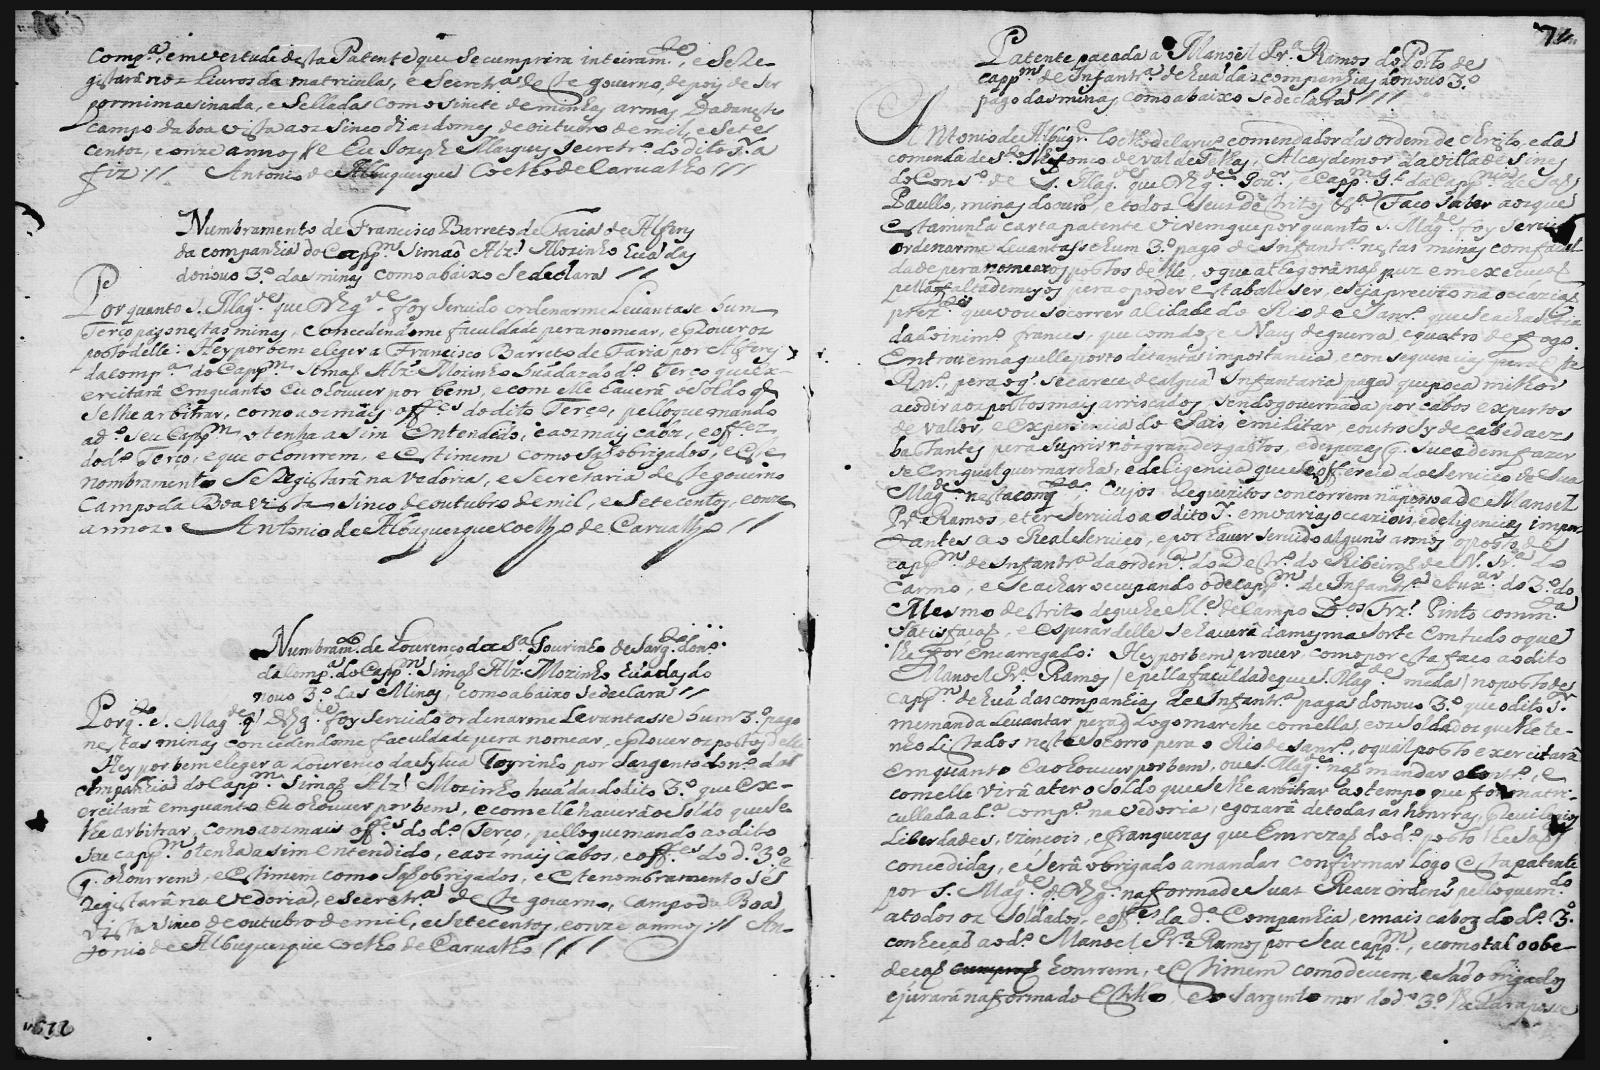 comp.ª, em vertude desta Patente que se cumprira inteiram.te, e se Re-
gistará nos Livros da matricula, e Secretr.ª deste governo, depois de ser
por mim asinada, e sellada com o sinete de minhas armas Dada neste
campo da boa vista aos sinco dias do mes de outubro de mil, e sete
centos, e onze annos // e Eu Joseph Marques secretr.º do dito S.r a
fiz // Antonio de Albuquerque Coelho de Carvalho ///
Numbramento de Francisco Barreto de Faria de Alferes
da companhia do Capp.m Simaõ Alz' Mozinho huã das
do novo 3.º das minas como abaixo se declara //
Por quanto S. Mag.de que D.s g.de foy servido ordenarme Levantase hum
Terço pago nestas minas, concedendome faculdade pera nomear, e prover os
postos delle: Hey por bem eleger a Francisco Barreto de Faria por Alferes
da comp.ª do Capp.m Simaõ Alz' Mozinho huã das do d.º Terço que ex-
ercitará emquanto Eu o louver por bem, e com elle haverá o soldo q̃
se lhe arbitrar, como aos mais off.es do dito Terço, pello que mando
ao d.º seu Capp.m o tenha asim Entendido, e aos mais cabos, e off.es
do d.º Terço, e que o honrrem, e Estimem como saõ obrigados, e este
nombramento se Registará na Vedoria, e Secretaria deste governo
Campo da Boa vista sinco de outubro de mil, e sete centos, e onze
annos. Antonio de Albuquerque Coelho de Carvalho //
Numbram.to de Lourenço da S.ª Tourinho de Sarg.to do n.º
da comp.ª do Capp.m Simaõ Alz' Mozinho huã das do
novo 3.º das Minas, como abaixo se declara //
Porq.to S. Mag.de q' D.s g.de foy servido ordenarme Levantasse hum 3.º pago
nestas minas concedendome faculdade pera nomear, e Prover os postos delle
Hey por bem eleger a Lourenco da Sylva Toyrinho por Sargento do n.º da
companhia do Capp.m Simaõ Alz' Mozinho huã das do dito 3.º que ex-
ercitará emquanto Eu o houver por bem, e com elle haverá o soldo que se
lhe arbitrar, como aos mais off.es do d.º Terço, pello que mando ao dito
seu capp.m o tenha asim entendido, e aos mais cabos, e off.es do d.º 3.º
q. o honrrem, e Estimem como saõ obrigados, e este nombramento se
Registará na Vedoria, e secretr.ª deste governo, Campo da Boa
vista sinco de outubro de mil, e sete centos, e onze annos // An-
tonio de Albuquerque Coelho de Carvalho ////
74
Patente pacada a Manoel Pr.ª Ramos do Posto de
capp.m de Infantr.ª de huã das companhias do novo 3.º
pago das minas como abaixo se declara ///
Antonio de Albuqr.e Coelho de Carv.º comendador da ordem de christo, e da
comenda de S.to Ilefonço de val de Telhas, Alcayde mor da villa de sines
do Cons.º de S. Mag.de que D.s g.de Gov.or, e Capp.m g.l da Capp.nia de Saõ
Paullo, minas do ouro, e todos seus Destritos &.ª Faço saber aos que
esta minha carta patente virem que por quanto S. Mag.de foy servido
ordenarme Levantasse hum 3.º pago de Infantr.ª nestas minas com facul
dade pera nomear os postos delle, o que athe gora naõ puz em execucaõ
pella falta de meyos pera o poder estabaleser, e seja precizo na occaziaõ
prez.te que vou socorrer a Cidade do Rio de Janr.º que se acha sitia
da do inim.º frances, que com dez.e Naus de guerra e quatro de fogo
Entrou em aquelle porto de tanta importancia, e consequencias pera este
Rn.º, pera o q' se carece de algua Infantaria paga que possa milhor
acodir aos postos mais arriscados, sendo governada por cabos expertos
de vallor, e experiencia do Pais, e militar, e outro sy de cabedaes
bastantes pera suprir nos grandes gastos, e despezas q. sucedem fazer
se em qualquer marcha, e deligencia que se offereça do Servico de Sua
Mag.de nesta conq.ta: Cujos Requizitos concorrem na pessoa de Manoel
Pr.ª Ramos, e ter servido ao dito S.r em varias occazioẽs, e deligencias impor-
tantes ao Real Servico, e por haver servido alguns annos o posto de
capp.m de Infantr.ª da orden.ça do Destr.º do Ribeiraõ de N. Sr.ª do
Carmo, e se achar occupando o de capp.m de Infantr.ª Aux.ar do 3.º do
Mesmo destrito de que he M.e de Campo D.os Frz' Pinto com m.ta
satisfacaõ, e esperar delle se haverá da mesma sorte em tudo o que
lhe for encarregado: Hey por bem prover, como por esta faco ao dito
Manoel Pr.ª Ramos / e pella faculdade que S. Mag.de me da / no posto de
capp.m de huã das companhias de Infantr.ª paga do novo 3.º que o dito S.r
me manda Levantar pera q' Logo marche com ella, e os soldados que lhe te-
nho Listados neste socorro pera o Rio de Janr.º, o qual posto exercitará
Emquanto Eu o houver por bem, ou S. Mag.de naõ mandar o contr.º, e
com elle virá a ter o soldo que se lhe arbitrar ao tempo que for matri-
cullada a d.ª comp.ª na vedoria, e gozará de todas as honrras, previlegios
Liberdades, izencois, e franquezas que Em rezaõ do d.º posto lhe saõ
concedidas, e será obrigado a mandar confirmar Logo Esta patente
por S. Mag.de q' D.s g.de na forma de suas Reais ordens pello que m.do
a todos os Soldados, e off.es da d.ª Companhia, e mais cabos do d.º 3.º
conheçaõ ao d.º Manoel Pr.ª Ramos por seu capp.m, e como tal o obe-
deçaõ honrrem, e Estimem como devem, e saõ obrigados
e jurará na forma do Estillo, e o Sargento mor do d.º 3.º lhe dara posse